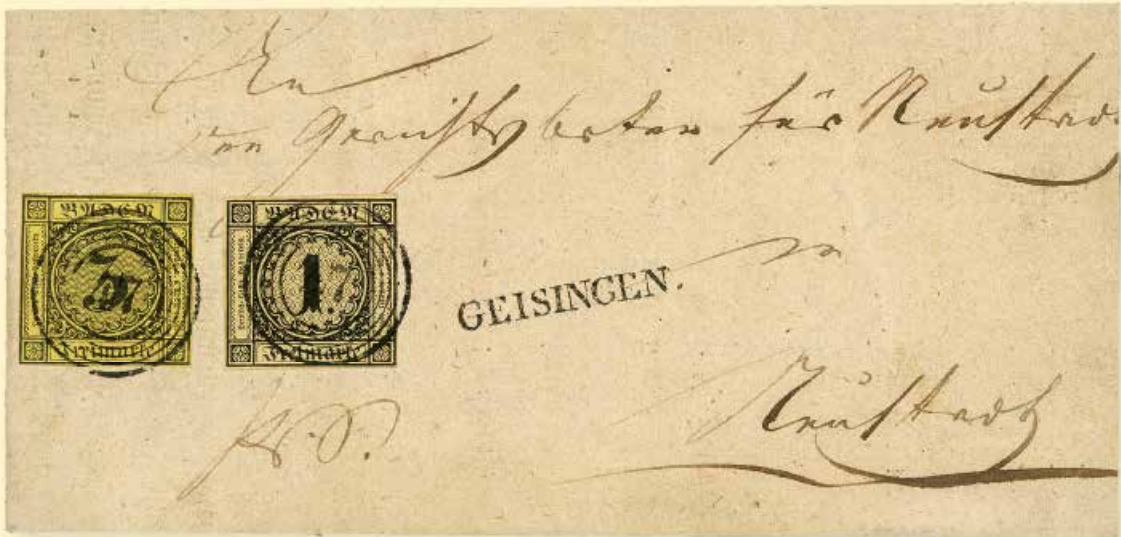 An
den Gerichtsboten für Neustadt
BADEN
3
47
Freimarke
BADEN
1.
47
Freimarke
GEISINGEN.
in
Neustadt